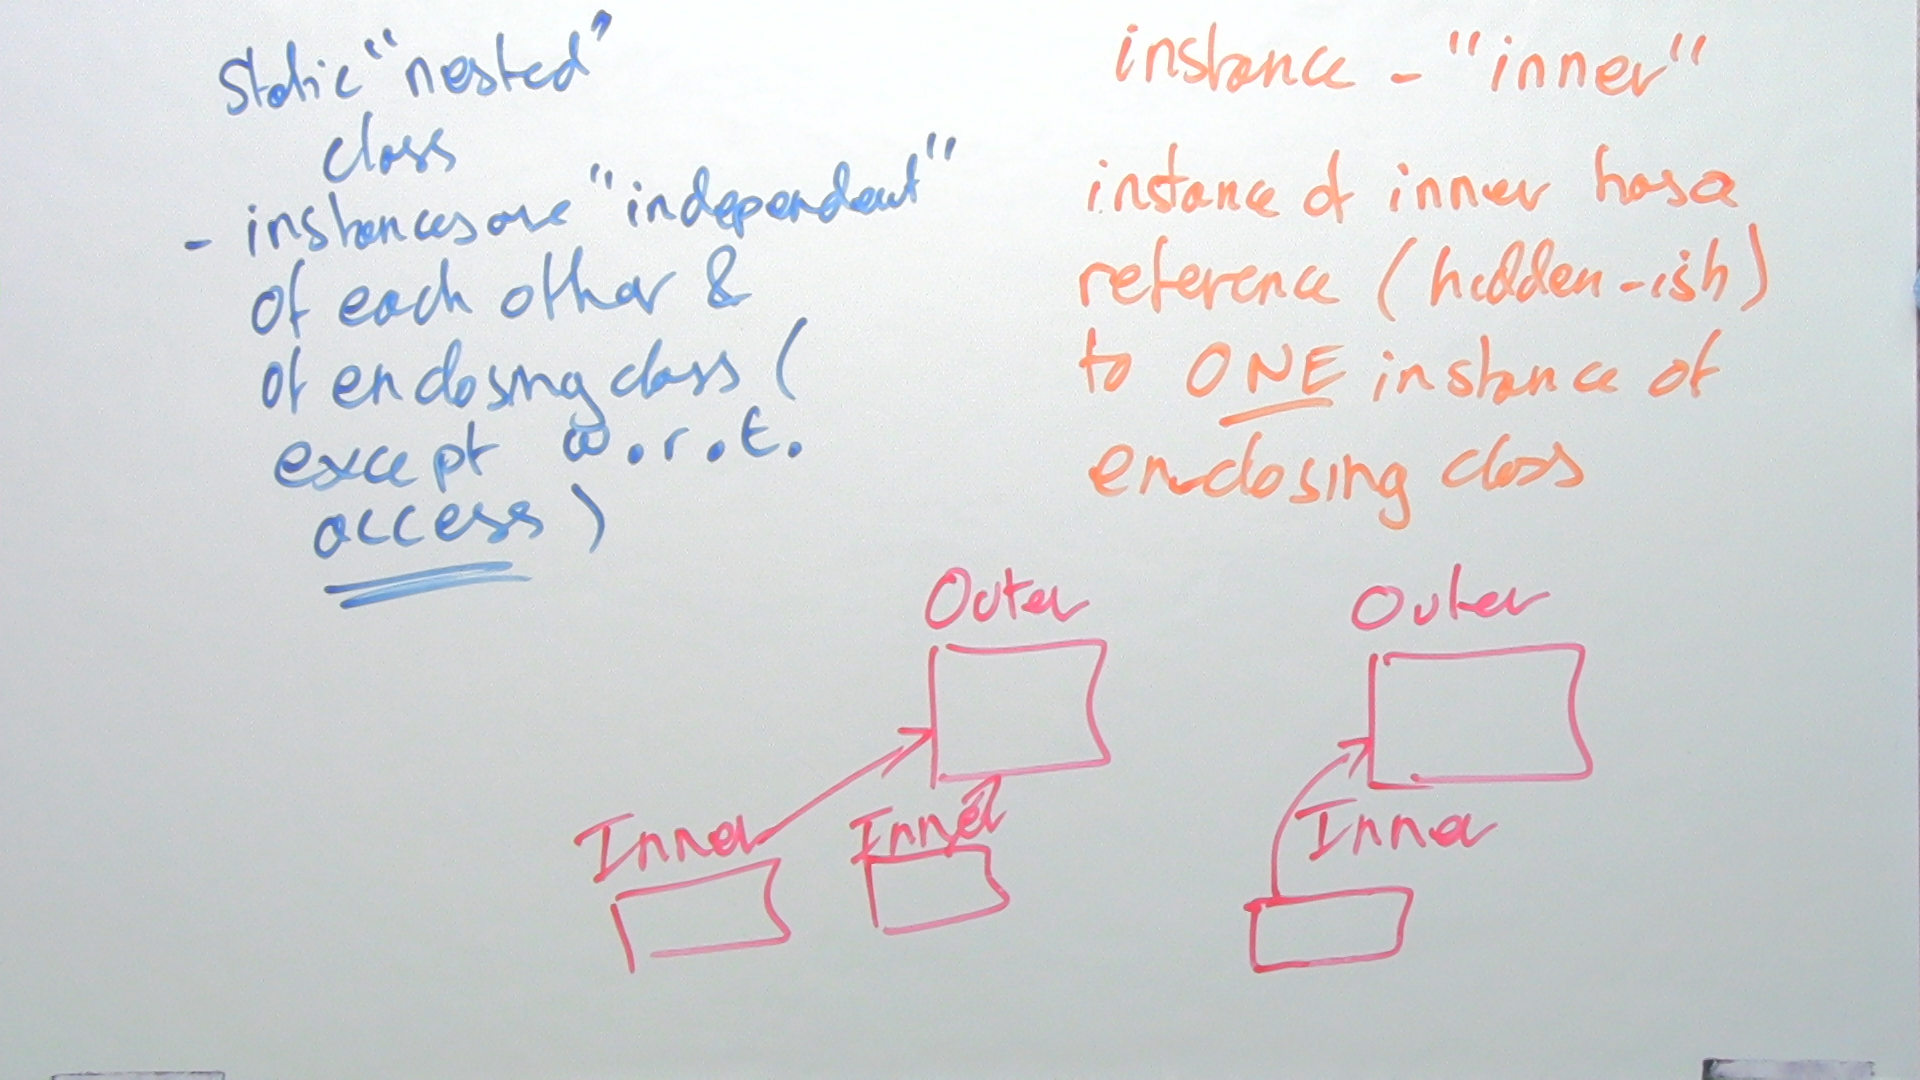 Static "nested"
class
- instances are "independent"
of each other &
of enclosing class (
except w.r.t.
access)
instance - "inner"
instance of inner has a
reference (hidden-ish)
to ONE instance of
enclosing class
Outer
Outer
Inner
Inner
Inner